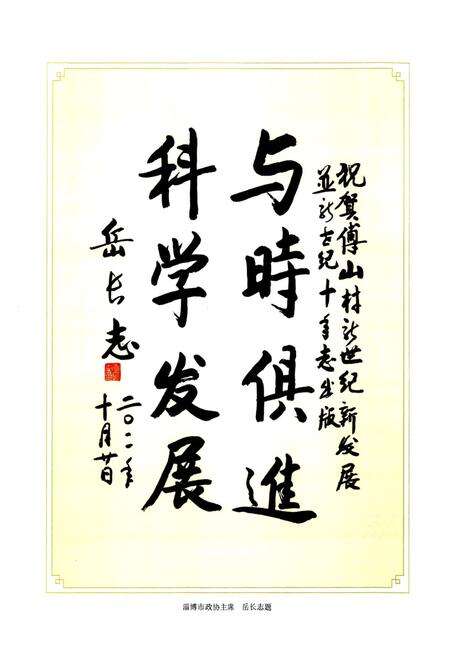 祝贺傅山村新世纪新发展
並新世纪十年志出版
与時俱進
科学发展
岳长志
二〇一一年
十月廿日
淄博市政协主席 岳长志题